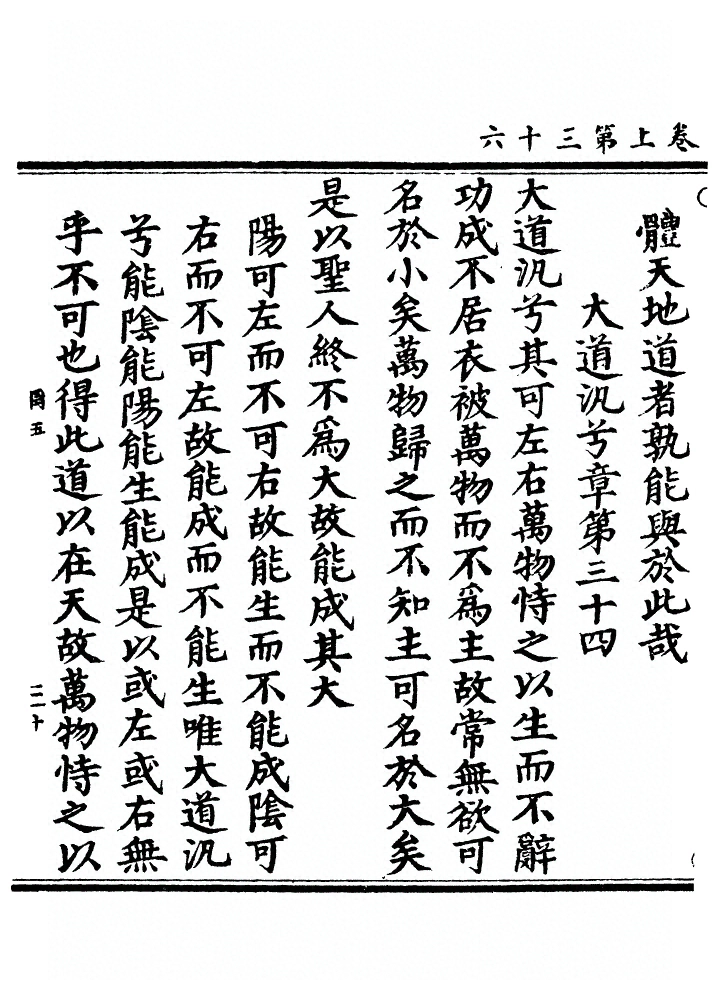 卷上第三十六
體天地道者孰能與於此哉
大道汎兮章第三十四
大道汎兮其可左右萬物恃之以生而不辭
功成不居衣被萬物而不爲主故常無欲可
名於小矣萬物歸之而不知主可名於大矣
是以聖人終不爲大故能成其大
陽可左而不可右故能生而不能成陰可
右而不可左故能成而不能生唯大道汎
兮能陰能陽能生能成是以或左或右無
乎不可也得此道以在天故萬物恃之以
罔五
二一十